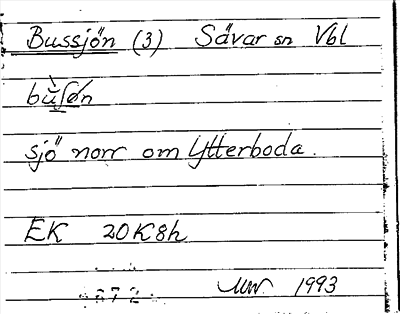 Bussjön (3) Sävar sn Vbl
bùʃøn
sjö norr om Ytterboda.
EK 20K8h
1993